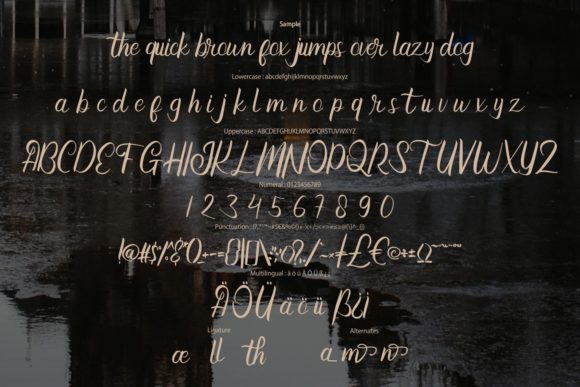 Sample
the quick brown fox jumps over lazy dog
Lowercase : abcdefghijklmnopqrstuvwxyz
a b c d e f g h i j k l m n o p q r s t u v w x y z
Uppercase : ABCDEFGHIJKLMNOPQRSTUVWXYZ
ABCDEFGHIJKLMNOPQRSTUVWXYZ
Numeral : 0123456789
1 2 3 4 5 6 7 8 9 0
Punctuation :
Multilingual : ä ö ü Ä Ö Ü ß
ÄÖÜ ä ö ü
Ligature Alternates
æ ll th a m n